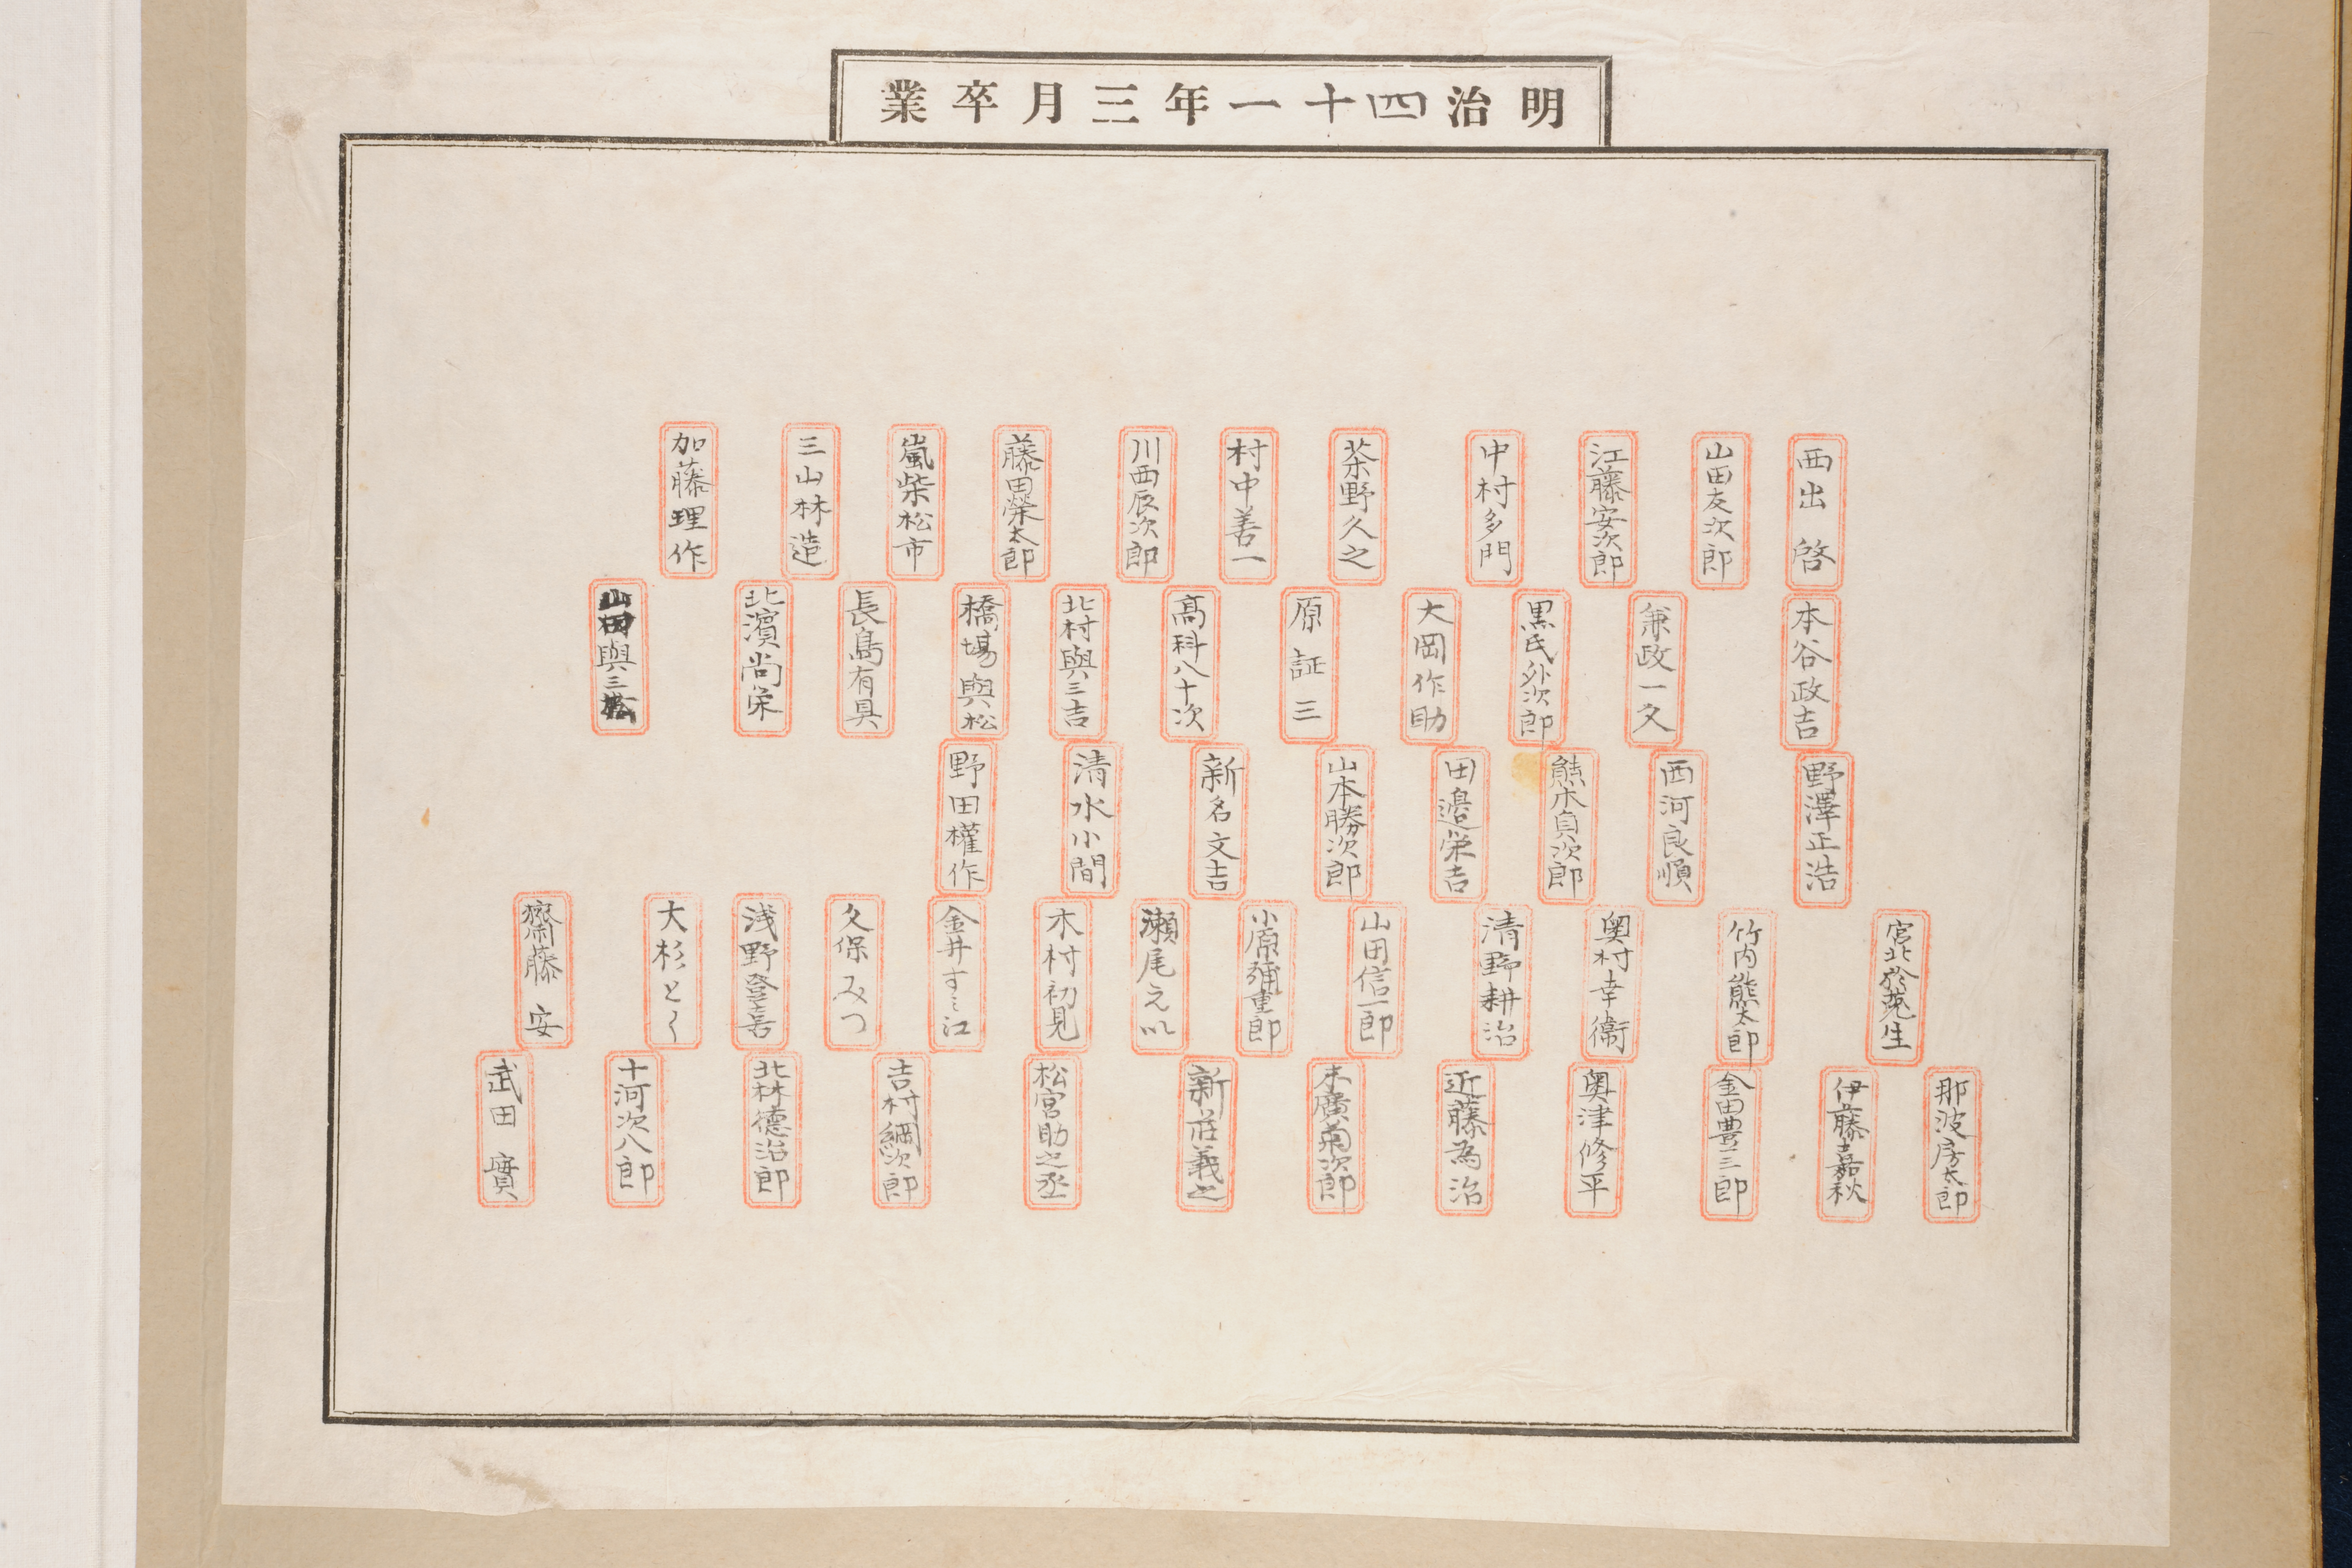 明治四十一年三月卒業
西出啓
山田友次郎
江藤安次郎
中村多門
茶野久之
村中善一
川西辰次郎
藤田榮太郎
嵐柴松市
三山林造
加藤理作
本谷政吉
兼政一久
黒氏外次郎
大岡作助
原証三
高科八十次
北村與三吉
橋場與松
長島有具
北濱尚栄
山田與三松
野澤正浩
西河良順
熊木貞次郎
田邉栄吉
山本勝次郎
新名文吉
清水小間
野田權作
宮北於菟生
竹内熊太郎
奥村幸衞
清野耕治
山田信一郎
小原彌重郎
瀬尾えい
木村初見
金井すミ江
久保みつ
浅野登喜
大杉とく
齋藤安
那波房太郎
伊藤嘉秋
金田豊三郎
奥津修平
近藤為治
末廣菊次郎
新莊義之
松宮助之丞
吉村綱次郎
北林德治郎
十河次八郎
武田實